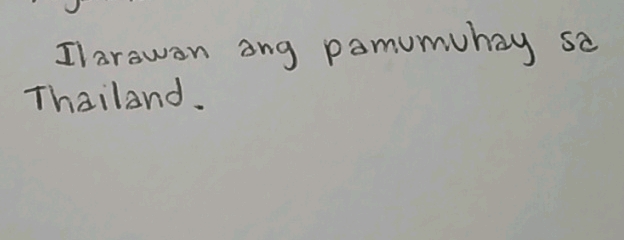 Ilarawan ang pamumuhay sa
Thailand.